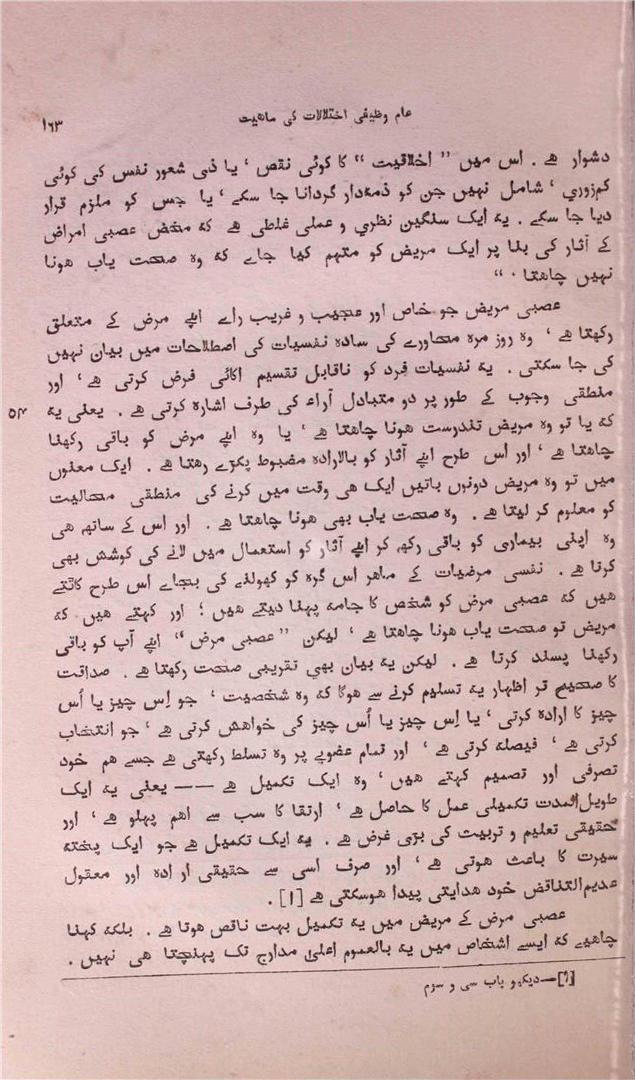 عام وظیفی اختلالات کی ماهیت
۱۶۳
دشوار هے ۔ اس میں ” اخلاقیت “ کا کوئی نقص ‘ یا ذی شعور نفس کی کوئی
کمزوري ‘ شامل نہیں جن کو ذمہدار گردانا جا سکے ‘ یا جس کو ملزم قرار
دیا جا سکے ۔ یہ ایک سنگین نظري و عملی غلطی هے کہ محض عصبی امراض
کے آثار کی بنا پر ایک مریض کو متہم کیا جاے کہ وہ صحت یاب هونا
نہیں چاهتا ۔ “
عصبی مریض جو خاص اور عجیب و غریب راے اپنے مرض کے متعلق
رکھتا هے ‘ وہ روز مرہ محاورے کی سادہ نفسیات کی اصطلاحات میں بیان نہیں
کی جا سکتی ۔ یہ نفسیات فرد کو ناقابل تقسیم اکائی فرض کرتی هے ‘ اور
منطقی وجوب کے طور پر دو متبادل آراء کی طرف اشارہ کرتی هے ۔ یعنی یہ
کہ یا تو وہ مریض تندرست هونا چاهتا هے ‘ یا وہ اپنے مرض کو باقی رکھنا
چاهتا هے ‘ اور اس طرح اپنے آثار کو بالارادہ مضبوط پکڑے رهتا هے ۔ ایک معنوں
میں تو وہ مریض دونوں باتیں ایک هی وقت میں کرنے کی منطقی محالیت
کو معلوم کر لیتا هے ۔ وہ صحت یاب بھی هونا چاهتا هے ۔ اور اس کے ساتھ هی
وہ اپنی بیماری کو باقی رکھ کر اپنے آثار کو استعمال میں لانے کی کوشش بھی
کرتا هے ۔ نفسی مرضیات کے ماهر اس گرہ کو کھولنے کی بجاے اس طرح کاٹتے
هیں کہ عصبی مرض کو شخص کا جامہ پہنا دیتے هیں ؛ اور کہتے هیں کہ
مریض تو صحت یاب هونا چاهتا هے ‘ لیکن ” عصبی مرض “ اپنے آپ کو باقی
رکھنا پسند کرتا هے ۔ لیکن یہ بیان بھی تقریبی صحت رکھتا هے ۔ صداقت
کا صحیح تر اظہار یہ تسلیم کرنے سے هوگا کہ وہ شخصیت ‘ جو اِس چیز یا اُس
چیز کا ارادہ کرتی ‘ یا اِس چیز یا اُس چیز کی خواهش کرتی هے ‘ جو انتخاب
کرتی هے ‘ فیصلہ کرتی هے ‘ اور تمام عضویے پر وہ تسلط رکھتی هے جسے هم خود
تصرفی اور تصمیم کہتے هیں ‘ وہ ایک تکمیل هے —— یعنی یہ ایک
طویل‌المدت تکمیلی عمل کا حاصل هے ‘ ارتقا کا سب سے اهم پہلو هے ‘ اور
حقیقی تعلیم و تربیت کی بڑی غرض هے ۔ یہ ایک تکمیل هے جو ایک پختہ
سیرت کا باعث هوتی هے ‘ اور صرف اسی سے حقیقی ارادہ اور معقول
عدیم‌التناقض خود هدایتی پیدا هوسکتی هے [۱] ۔
عصبی مرض کے مریض میں یہ تکمیل بہت ناقص هوتا هے ۔ بلکہ کہنا
چاهیے کہ ایسے اشخاص میں یہ بالعموم اعلیٰ مدارج تک پہنچتا هی نہیں ۔
[۱]—دیکھو باب سی و سوم